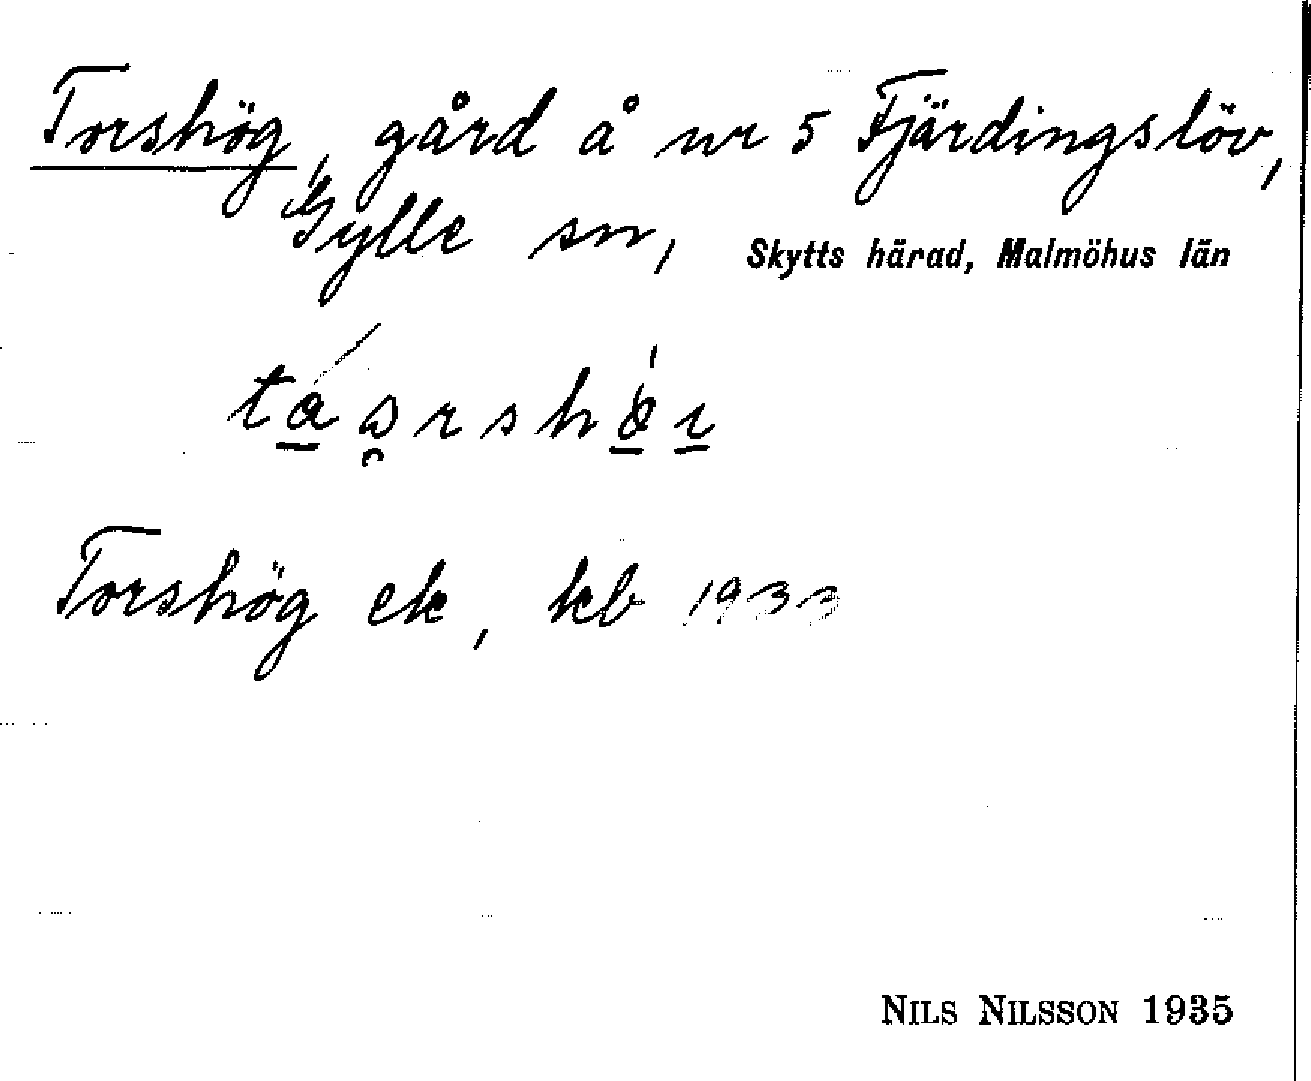 Torshög, gård å nr 5 Fjärdingslöv,
Gylle sn, Skytts härad, Malmöhus län
Torshög ek, kb 1933
NILS NILSSON 1935